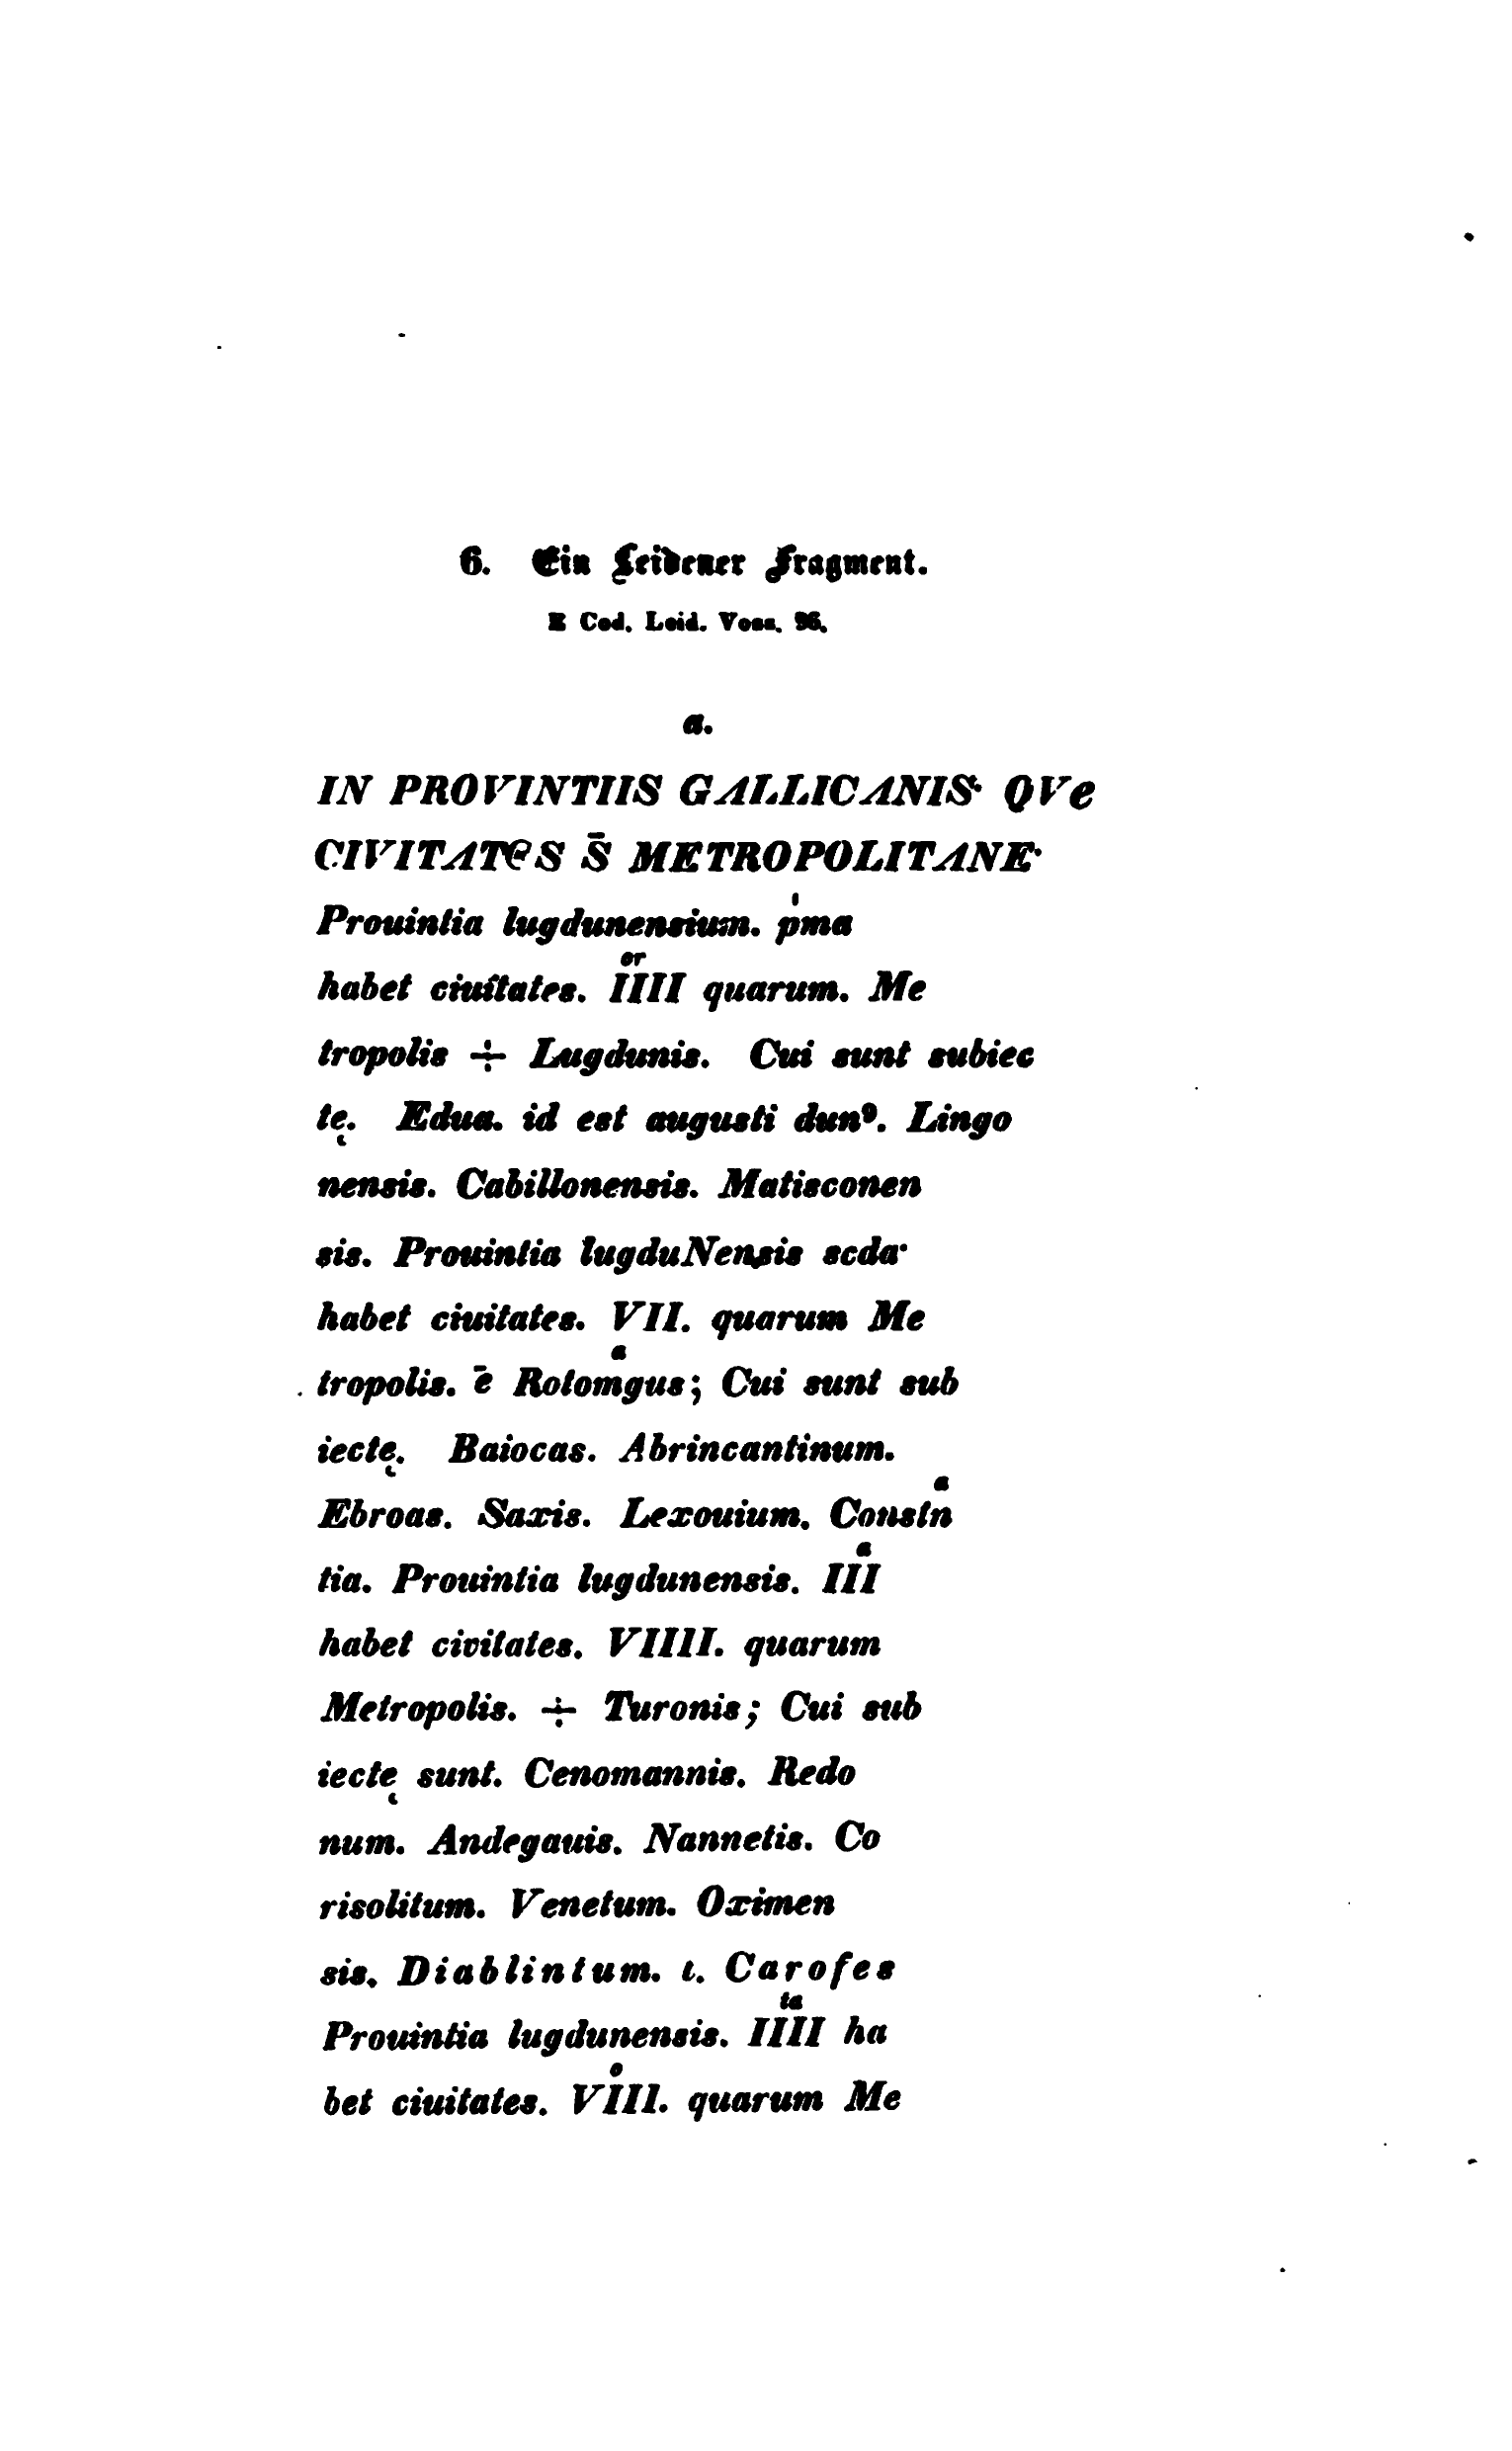 6. Ein Leidener Fragment.
E Cod. Leid. Voss. 96.
a.
IN PROVINTIIS GALLICANIS· QVe
CIVITATeS S̄ METROPOLITANE·
Prouintia lugdunensium. pͥma
habet ciuitates. IIIIᵒʳ quarum. Me
tropolis ÷ Lugdunis. Cui sunt subiec
tę. Edua. id est augusti dunꝰ. Lingo
nensis. Cabillonensis. Matisconen
sis. Prouintia lugduNensis scda·
habet ciuitates. VII. quarum Me
tropolis. ē Rotomͣgus; Cui sunt sub
iectę. Baiocas. Abrincantinum.
Ebroas. Saxis. Lexouium. Constnͣ
tia. Prouintia lugdunensis. IIIᵃ
habet civitates. VIIII. quarum
Metropolis. ÷ Turonis; Cui sub
iectę sunt. Cenomannis. Redo
num. Andegauis. Nannetis. Co
risolitum. Venetum. Oximen
sis. Diablintum. ι. Carofes
Prouintia lugdunensis. IIIIᵗᵃ ha
bet ciuitates. VIIIᵒ. quarum Me